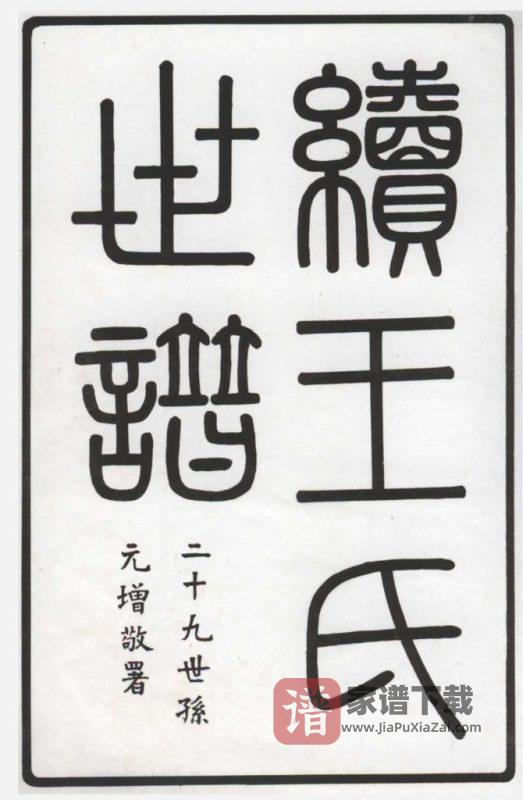 續王氏
世譜
二十九世孫
元增敬署
谱
家谱下载
www.JiaPuXiaZai.com